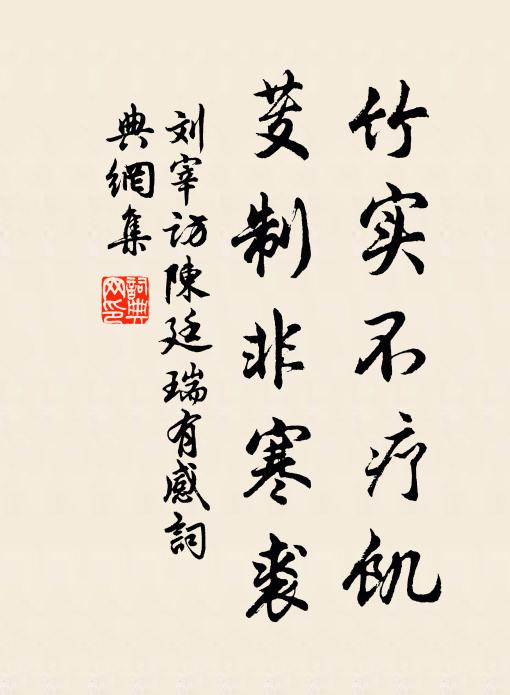 竹实不疗饥
芰制非寒裘
刘宰访陳廷瑞有感詞
典網集
詞典网印